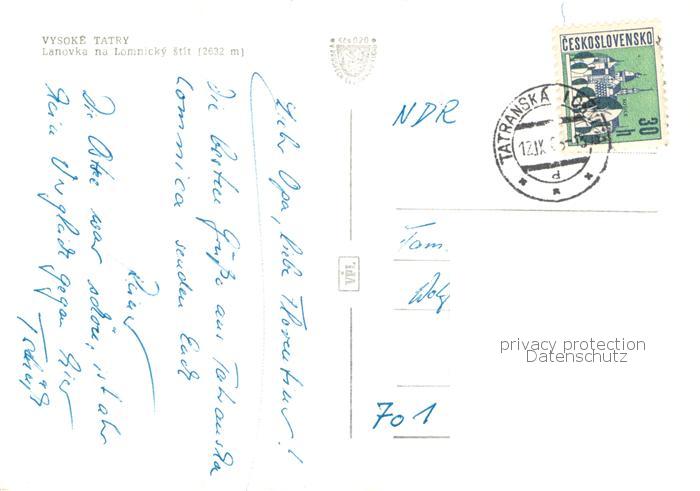 VYSOKÉ TATRY
Lanovka na Lomnický štít (2632 m)
Lieber Opa, liebe Florentine!
Die besten Grüße aus Tatranska
Lomnica senden Euch
Die Ostsee war schön, ist aber
kein Vergleich gegen hier
ČESKOSLOVENSKO
30 h
TATRANSKÁ
12.IX.
d
NDR
Fam.
701
privacy protection
Datenschutz